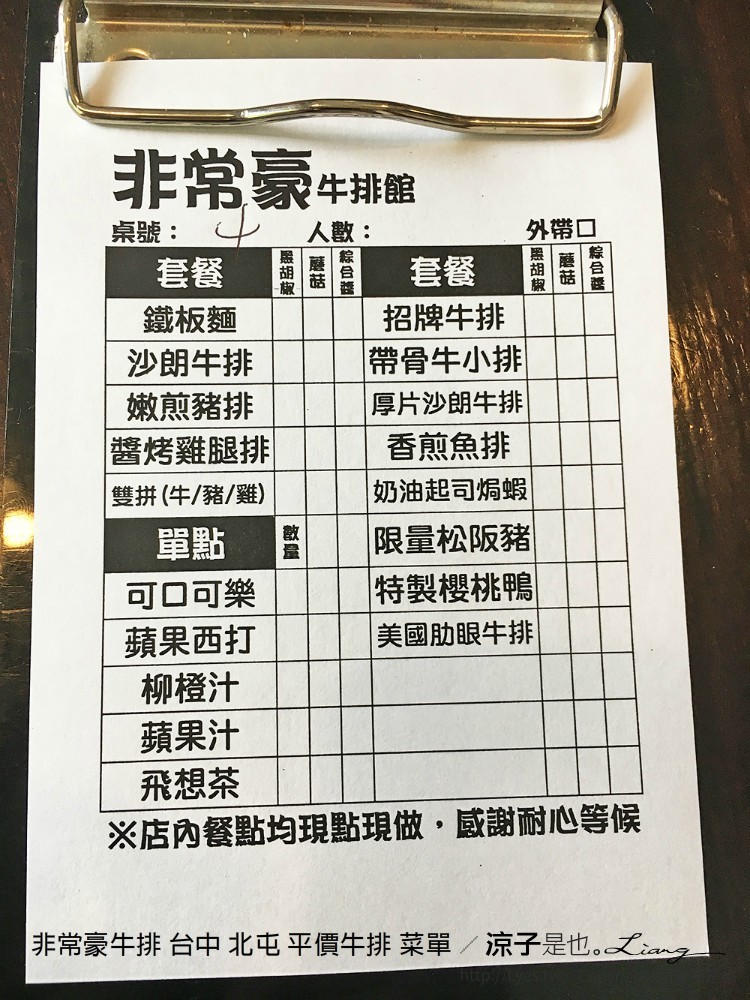 非常豪牛排館
桌號： 4 人數： 外帶□
套餐 黑胡椒 蘑菇 綜合醬 套餐 黑胡椒 蘑菇 綜合醬
鐵板麵 招牌牛排
沙朗牛排 帶骨牛小排
嫩煎豬排 厚片沙朗牛排
醬烤雞腿排 香煎魚排
雙拼(牛/豬/雞) 奶油起司焗蝦
單點 數量 限量松阪豬
可口可樂 特製櫻桃鴨
蘋果西打 美國肋眼牛排
柳橙汁
蘋果汁
飛想茶
※店內餐點均現點現做，感謝耐心等候
非常豪牛排 台中 北屯 平價牛排 菜單 / 涼子是也。Liang